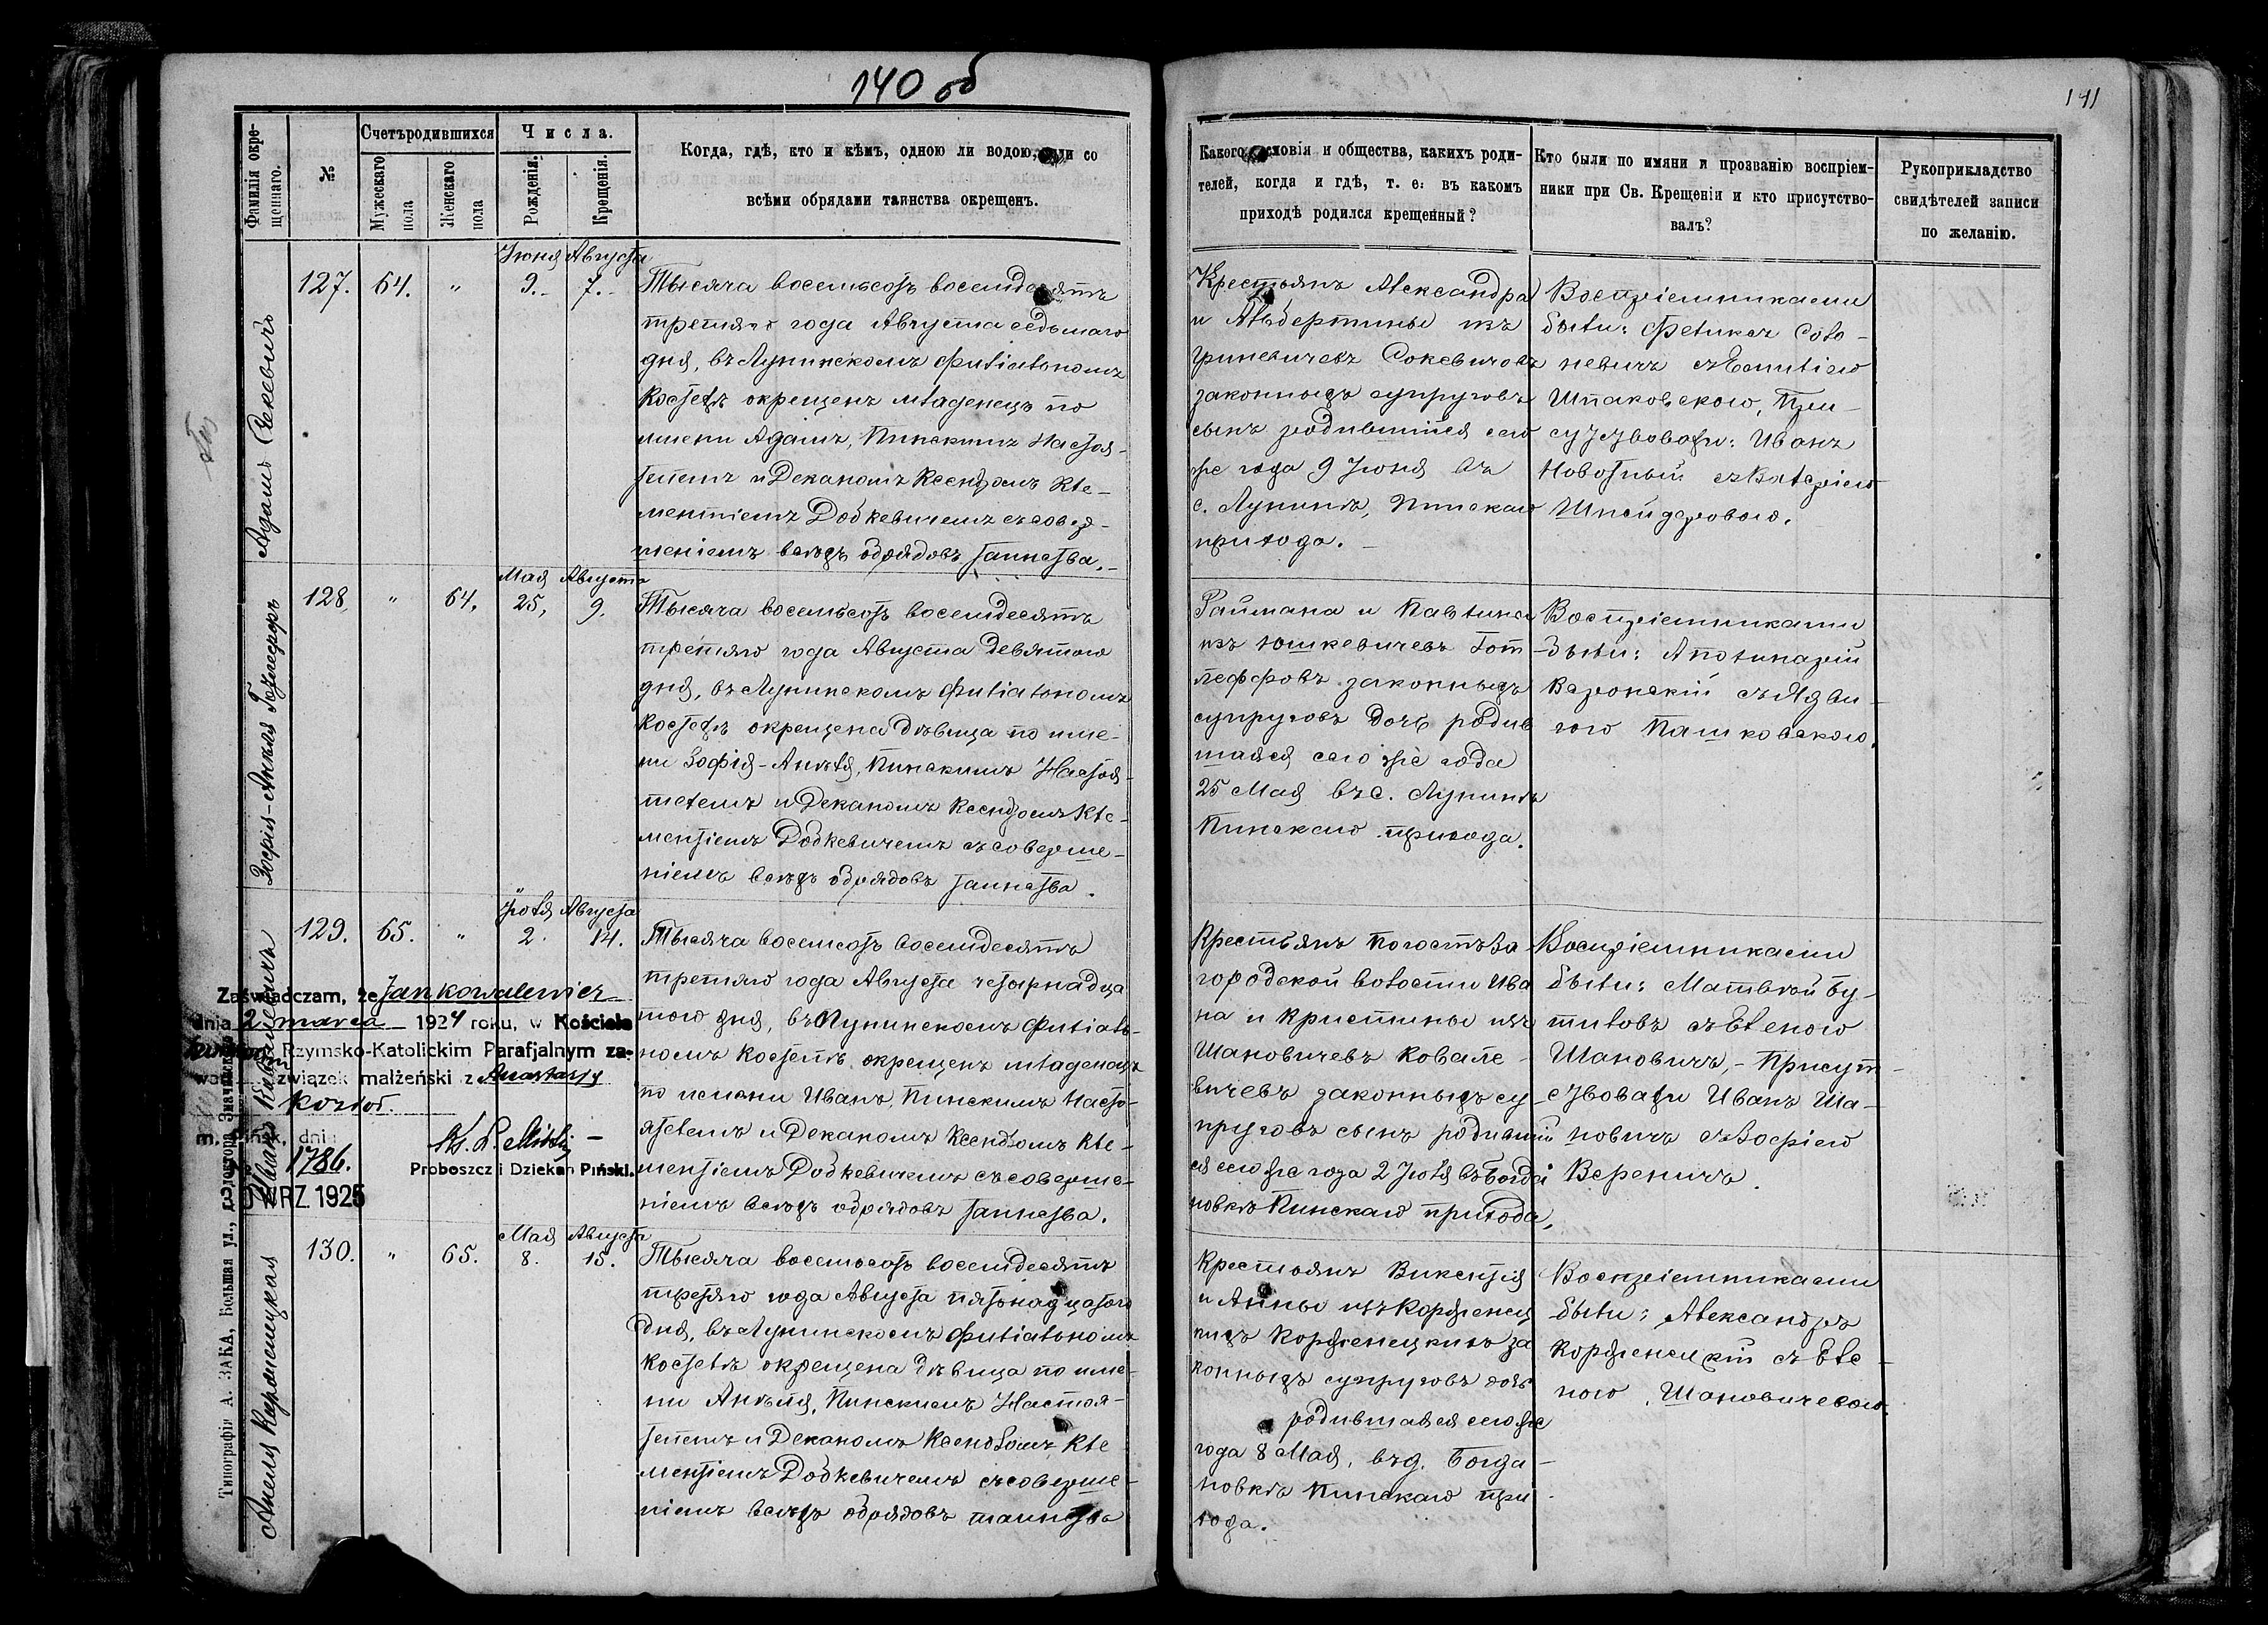 140 об
141
Фамилія окре-
щеннаго.
№
Счетъ родившихся
Мужескаго
пола
Женскаго
пола
Числа.
Рожденія.
Крещенія.
Когда, гдѣ, кто и кѣмъ, одною ли водою, или со
всѣми обрядами таинства окрещенъ.
Какого сословія и общества, какихъ роди-
телей, когда и гдѣ, т. е. въ какомъ
приходѣ родился крещенный?
Кто были по имяни и прозванію воспріем-
ники при Св. Крещенія и кто присутство-
валъ?
Рукоприкладство
свидѣтелей записи
по желанію.
Адамъ Сакевичъ
127.
64.
"
Іюня
9.
Августа
7.
Тысяча восемьсотъ восемдесятъ
третяго года Августа седьмаго
дня, въ Лунинскомъ филіальномъ
костелѣ окрещенъ младенецъ по
имени Адамъ, Пинскимъ Настоя-
телемъ и Деканомъ Ксендзомъ Кле-
ментіемъ Додкевичемъ съ совер-
шеніемъ всѣхъ обрядовъ таинства.
Крестьянъ Александра
и Альбертины изъ
Гриневичевъ Сокевичовъ
законныхъ супруговъ
сынъ родившійся сего
же года 9 Іюня въ
с. Лунинѣ, Пинскаго
прихода.
Воспріемниками
были: Феликсъ Соло-
невичъ съ Емиліею
Шпаковскою, При-
сутствовали: Иванъ
Новотный съ Валеріею
Шнейдеровою.
Зофія-Анеля Готлефоръ
128.
"
64.
Мая
25,
Августа
9.
Тысяча восемьсотъ восемдесятъ
третяго года Августа девятого
дня, въ Лунинскомъ филіальномъ
костелѣ окрещена дѣвица по име-
ни Зофія-Анеля, Пинскимъ Настоя-
телемъ и Деканомъ Ксендзомъ Кле-
ментіемъ Додкевичемъ съ соверше-
ніемъ всѣхъ обрядовъ таинства.
Раймана и Павлины
изъ Юшкевичевъ Гот
леффовъ законныхъ
супруговъ дочь родив
шаяся сего же года
25 Мая въ с. Лунинѣ
Пинскаго прихода.
Воспріемниками
были: Аполинарій
Варонскій съ Ядви-
гою Пашковскою.
Иванъ Ковалевичъ
129.
65.
"
Іюля
2.
Августа
14.
Тысяча восемсотъ восемдесятъ
третяго года Августа четырнадца
таго дня, въ Лунинскомъ филіаль-
номъ костелѣ окрещенъ младенецъ
по имени Иванъ, Пинскимъ Насто-
ятелемъ и Деканомъ Ксендзомъ Кле-
ментіемъ Додкевичемъ съ соверше-
ніемъ всѣхъ обрядовъ таинства.
Крестьянъ Погостъ За
городской волости Ива
на и Кристины изъ
Шановичевъ Ковале-
вичевъ законныхъ су-
пруговъ сынъ родивший
ся сего же года 2 Іюля въ Богда
новкѣ Пинскаго прихода,
Воспріемниками
были: Матвѣй Бу-
тиловъ съ Еленою
Шановичъ, - Присут-
ствовали Иванъ Ша-
новичъ съ Зофіею
Вереничъ.
Zaświadczam, że Jan Kowalewicz
dnia 2 marca 1924 roku, w Kościele
Rzymsko-Katolickim Parafjalnym za-
związek małżeński z Anastazją
Kozioł.
m. Pińsk, dnia
1786.
Proboszcz i Dziekan Piński.
WRZ. 1925
Анеля Корженецкая
130.
"
65.
Мая
8.
Августа
15.
Тысяча восемьсотъ восемдесятъ
третяго года Августа пятьнадцатого
дня, въ Лунинскомъ филіальномъ
костелѣ окрещена дѣвица по име-
ни Анеля, Пинскимъ Настоя-
телемъ и Деканомъ Ксендзомъ Кле
ментіемъ Додкевичемъ съ соверше-
ніемъ всѣхъ обрядовъ таинства
Крестьянъ Викентія
и Анны изъ Корженец
кихъ Корженецкихъ за
конныхъ супруговъ дочь
родившаяся сего же
года 8 Мая, въ д. Богда-
новкѣ Пинскаго при
хода.
Воспріемниками
были: Александръ
Корженецкій съ Еле-
ною Шановичевою.
Типографія А. ЗАКА, Большая ул.,